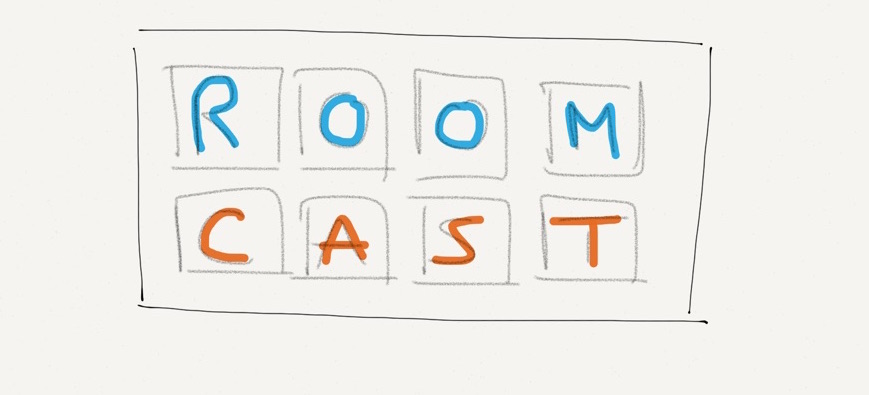 ROOM
CAST